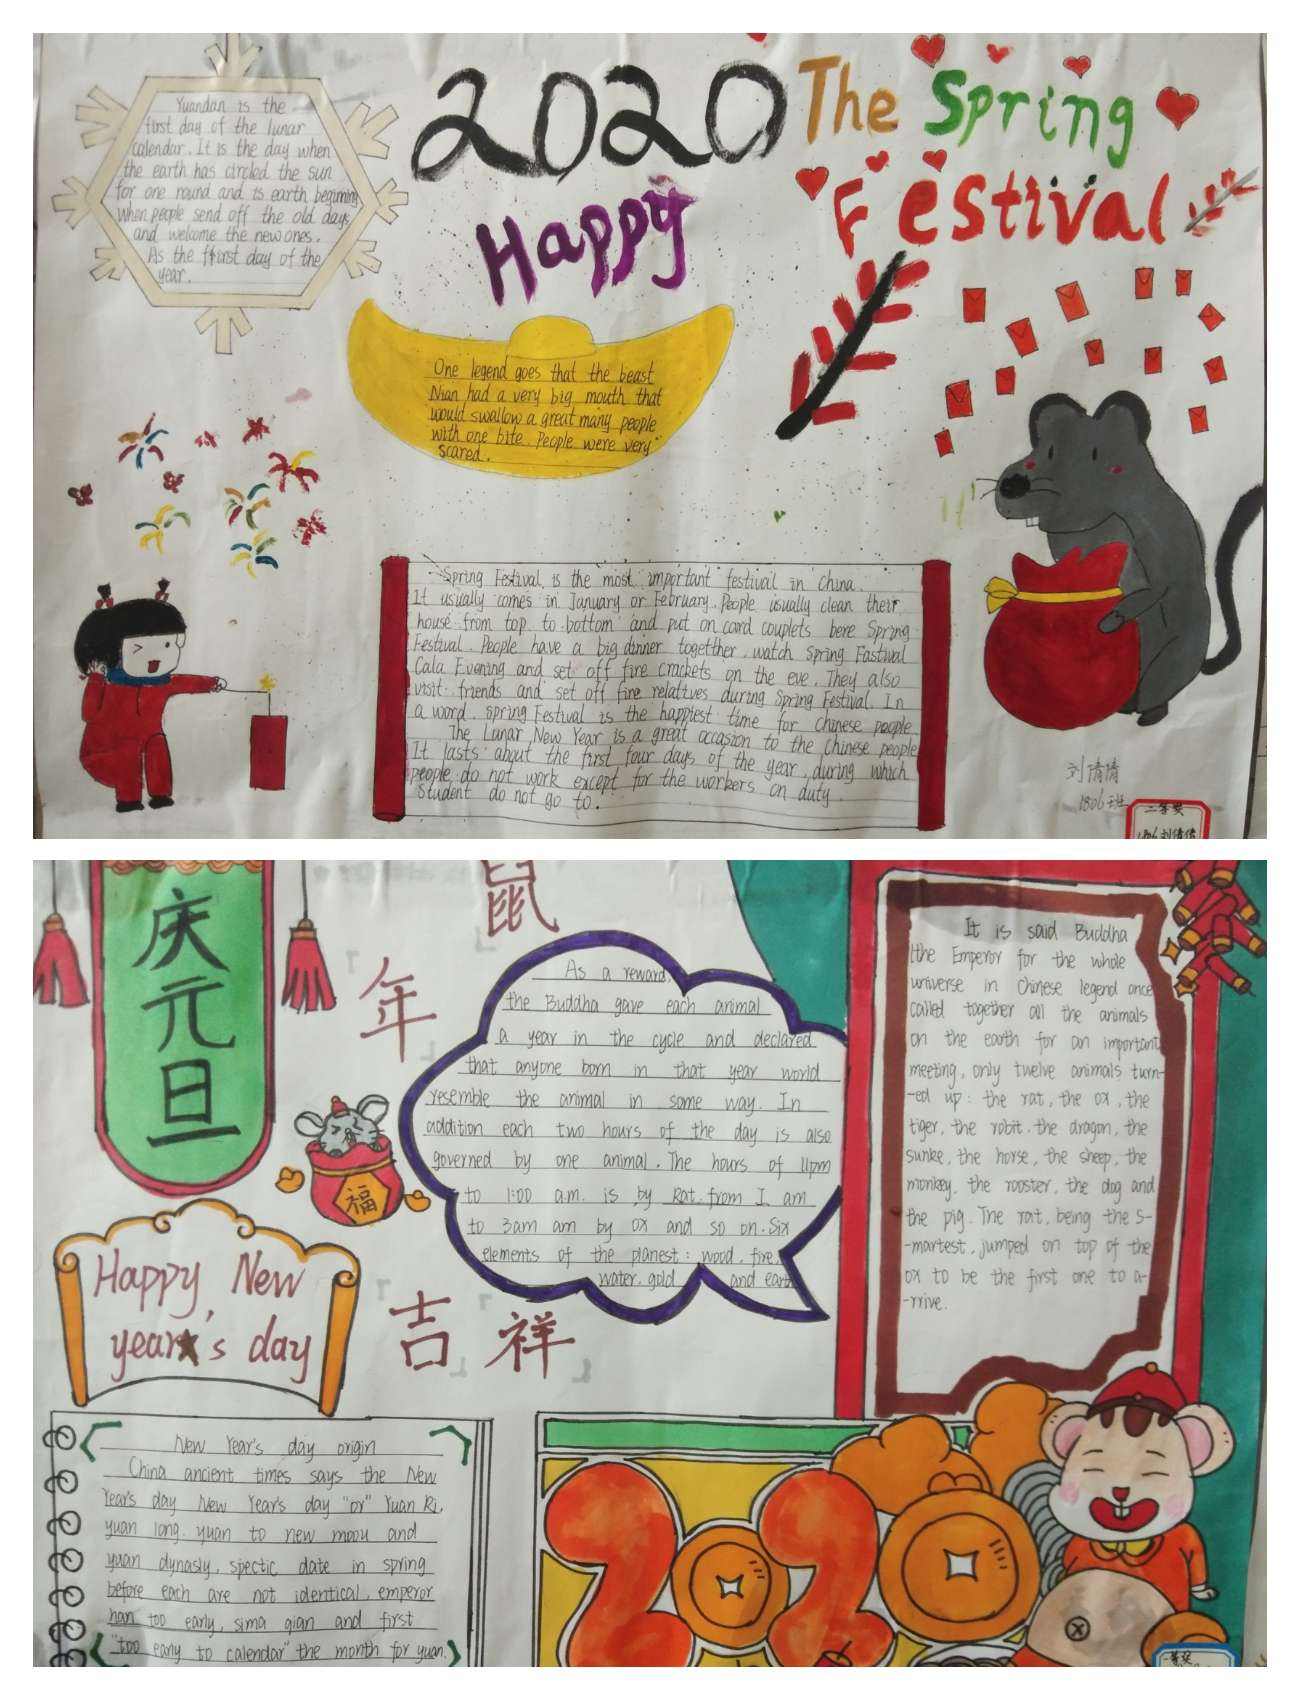 Yuandan is the
first day of the lunar
calendar. It is the day when
the earth has circled the sun
for one round and is earth beginning
when people send off the old days
and welcome the new ones.
As the ffirst day of the
year.
2020 The Spring
Happy Festival
One legend goes that the beast
Nian had a very big mouth that
would swallow a great many people
with one bite. People were very
scared.
Spring Festival is the most important festival in China.
It usually comes in January or February. People usually clean their
house from top to bottom and put on card couplets bere Spring
Festival. People have a big dinner together watch Spring Fastival
Cala Evening and set off fire crackets on the eve. They also
visit friends and set off fire relatives during Spring Festival. In
a word, spring Festival is the happiest time for Chinese people.
The Lunar New Year is a great occasion to the Chinese people
It lasts about the first four days of the year, during which
people do not work except for the workers on duty.
Student do not go to.
刘倩倩
1806班
二等奖
刘倩倩
庆元旦
鼠
年
吉祥
福
Happy New
year's day
As a reward,
the Buddha gave each animal
a year in the cycle and declared
that anyone born in that year world
resemble the animal in some way. In
addition each two hours of the day is also
governed by one animal. The hours of 11pm
to 1:00 a.m. is by Rat. from I am
to 3am am by ox and so on. Six
elements of the planest: wood, fire,
water, gold and earth
It is said Buddha
the Emperor for the whole
universe in Chinese legend once
called together all the animals
on the earth for an important
meeting, only twelve animals turn-
-ed up: the rat, the ox, the
tiger, the robit. the dragon, the
sunke, the horse, the sheep, the
monkey, the rooster, the dog and
the pig. The rat, being the s-
-martest, jumped on top of the
ox to be the first one to a-
-rrive.
New Year's day origin
China ancient times says the New
Year's day New Year's day "or" Yuan Ri,
yuan long. yuan to new moou and
yuan dynasly, spectic date in spring
before each are not identical, emperor
han too early, sima qian and first
"too eany to calendar" the month for yuan.
2020
一等奖